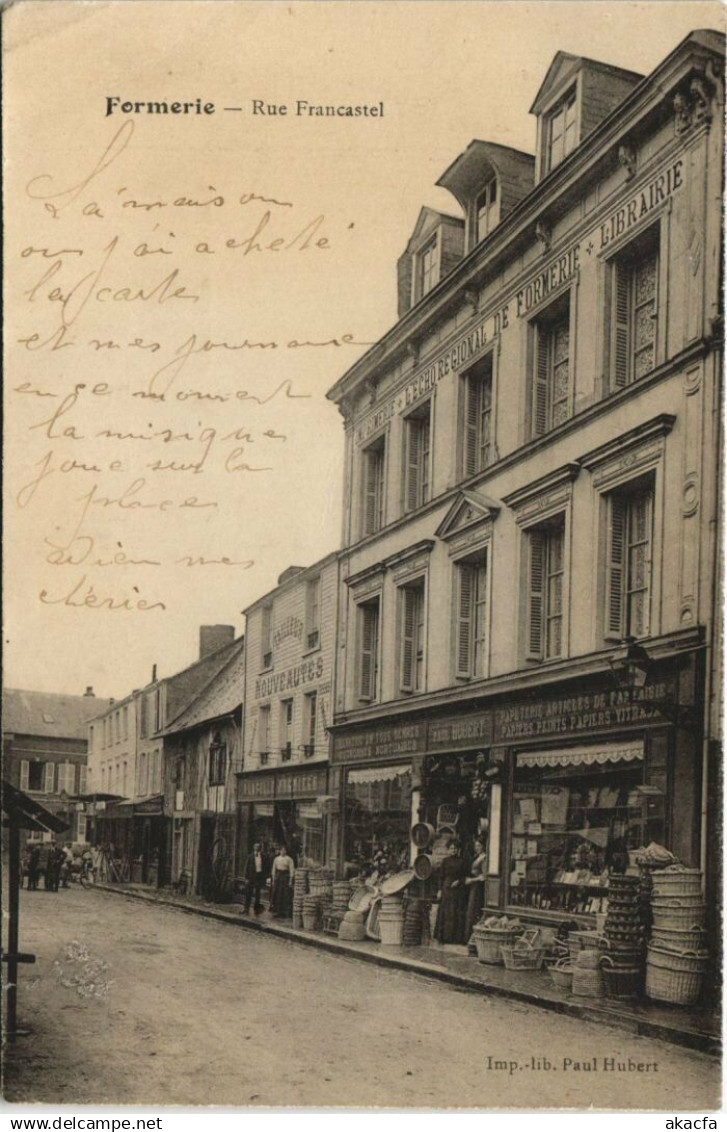 Formerie — Rue Francastel
La maison
ou j'ai acheté
la carte
et mes journaux
en ce moment
la musique
joue sur la
place
Adieu mes
chéries
IMPRIMERIE + L'ECHO REGIONAL DE FORMERIE + LIBRAIRIE
TAILLEUR
NOUVEAUTES
PAUL HUBERT
PAPETERIE ARTICLES DE
PAPIERS PEINTS PAPIERS VITRAUX
Imp.-lib. Paul Hubert
akacfa
delcampe.net